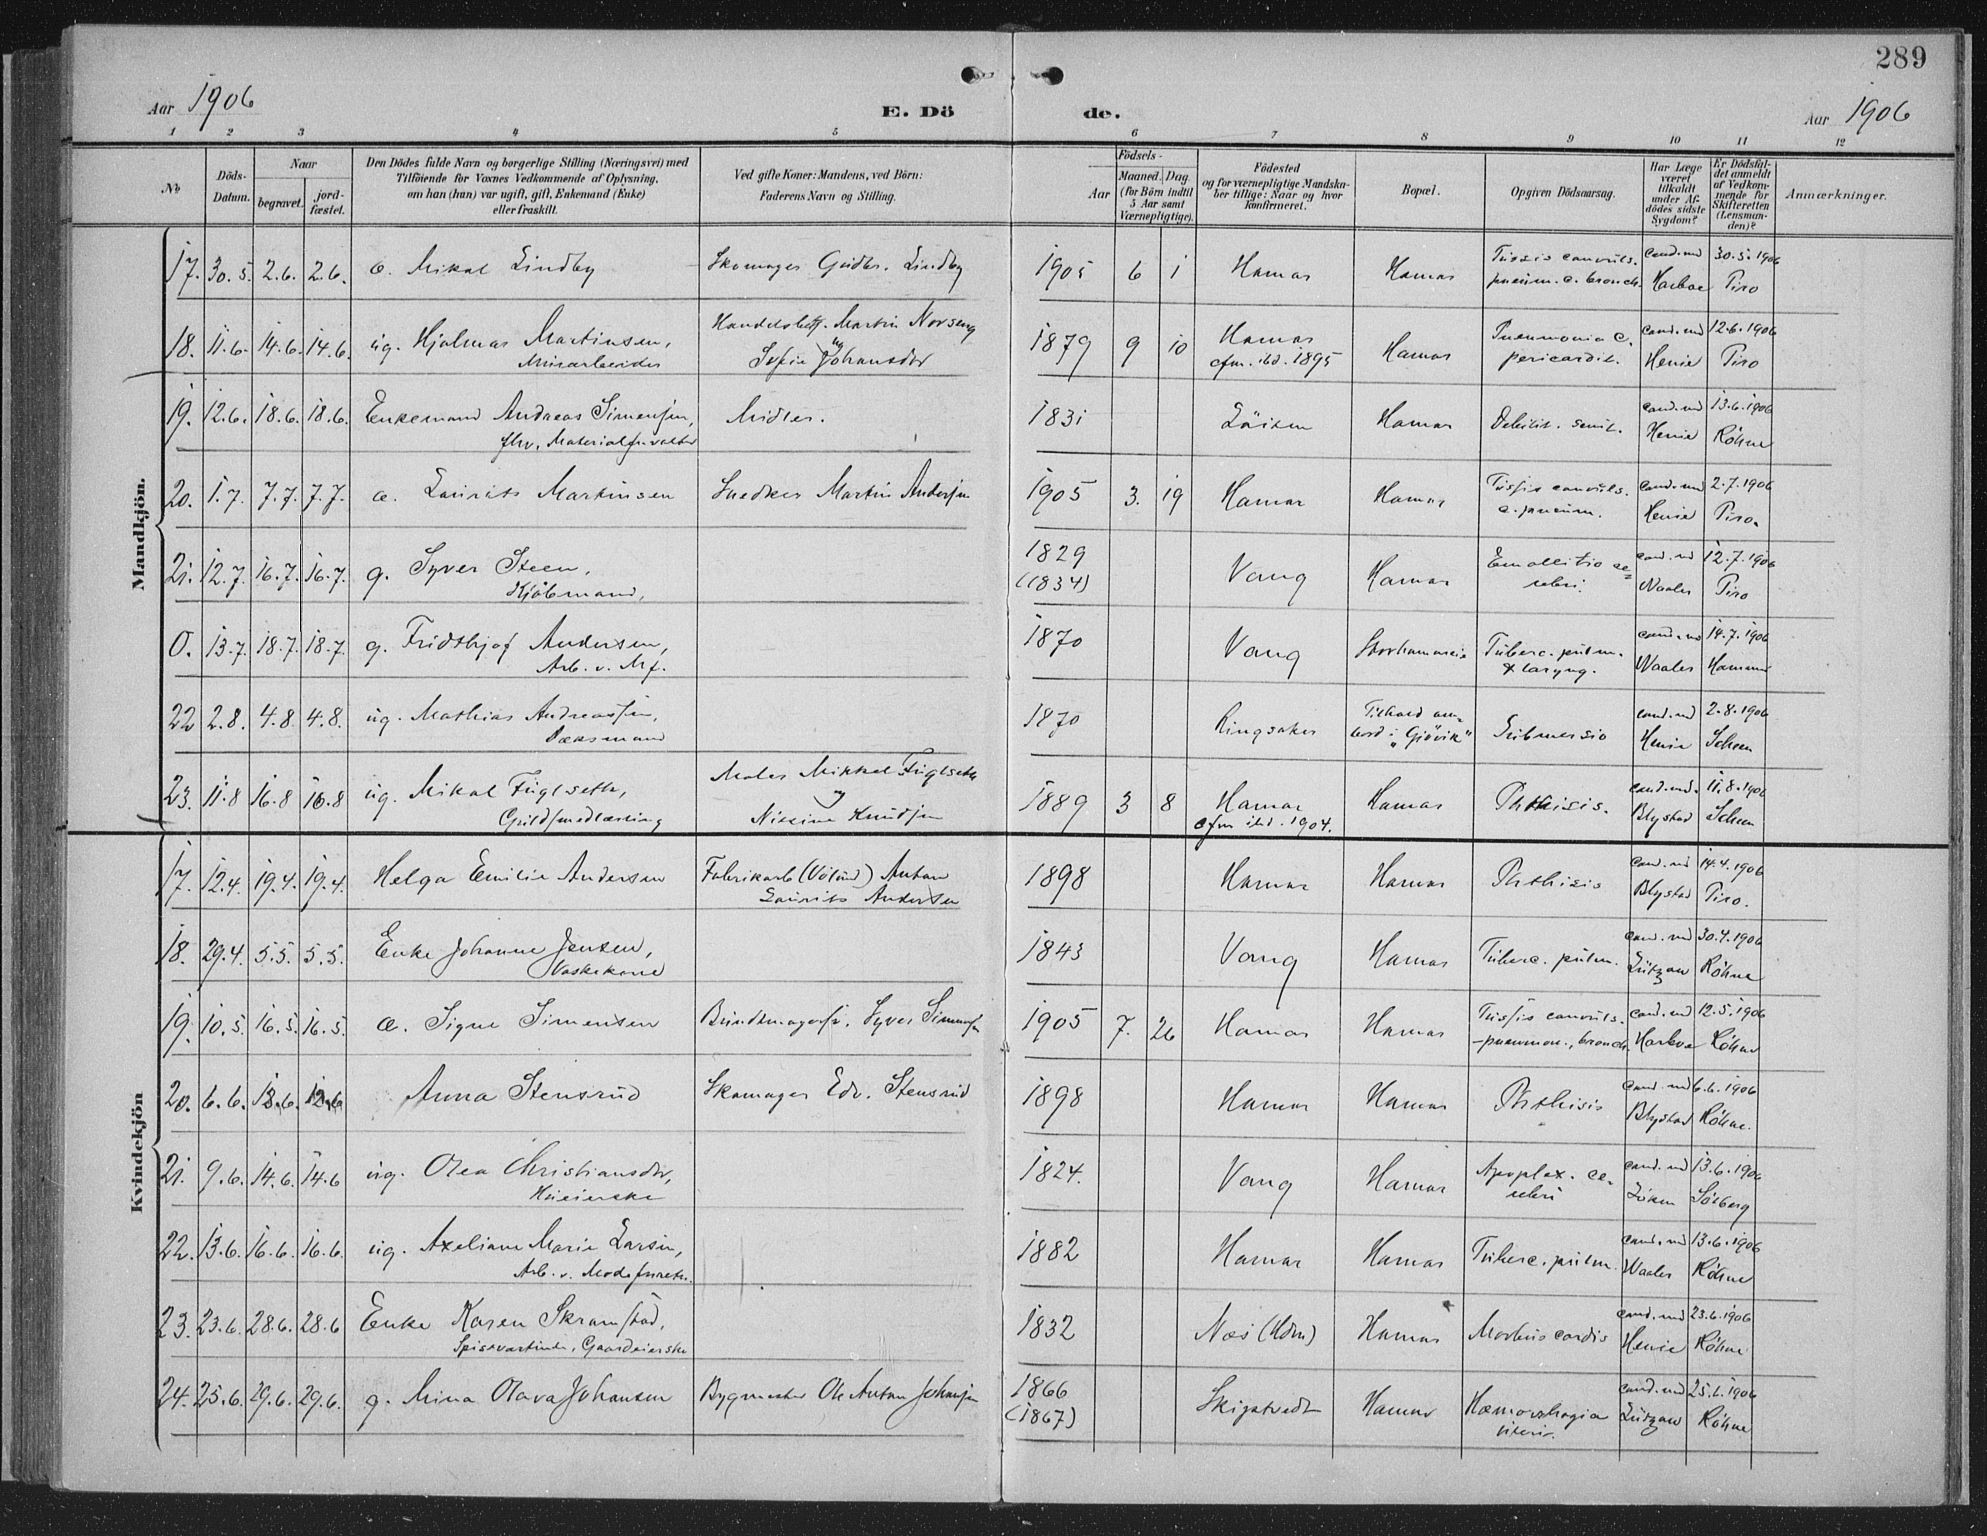 289
Aar 1906
E. Dö de.
Aar 1906
1 2 3 4 5 6 7 8 9 10 11 12
No
Döds-
Datum.
Naar
begravet.
jord-
fæstet.
Den Dödes fulde Navn og borgerlige Stilling (Næringsvei) med
Tilföiende for Voxnes Vedkommende af Oplysning,
om han (hun) var ugift, gift, Enkemand (Enke)
eller fraskilt.
Ved gifte Koner: Mandens, ved Börn:
Faderens Navn og Stilling.
Födsels-
Aar
Maaned. Dag.
(for Börn indtil
5 Aar samt
Værnepligtige).
Födested
og for værnepligtige Mandska-
ber tillige: Naar og hvor
konfirmeret.
Bopæl.
Opgiven Dödsaarsag.
Har Læge
været
tilkaldt
under Af-
dödes sidste
Sygdom?
Er Dödsfal-
det anmeldt
af Vedkom-
mende for
Skifteretten
(Lensman-
den)?
Anmærkninger.
Mandkjön.
17. 30.5. 2.6. 2.6. Mikal Lindby Skomager Gudbr. Lindby 1905 6 1 Hamar Hamar Tussis convuls. cand. md 30.5.1906
pneum. c. bronch. Harboe Piro
18. 11.6. 14.6. 14.6. ug. Hjalmar Martinsen, Handelsbetj. Martin Norseng 1879 9 10 Hamar Hamar Pneumonia c. cand. md 12.6.1906
Murarbeider Sofie Johansdtr cfm. ibd. 1895 pericardit. Henie Piro
19. 12.6. 18.6. 18.6. Enkemand Andreas Simensen, Midler. 1831 Löiten Hamar Debilit. senil. cand. md 13.6.1906
fhv. Materialforvalter Henie Röhne
20. 1.7. 7.7. 7.7. Laurits Martinsen Snedker Martin Andersen 1905 3. 19 Hamar Hamar Tussis convuls. cand. md 2.7.1906
c. pneum. Henie Piro.
21. 12.7. 16.7. 16.7. g. Syver Steen, 1829 Vang Hamar Emollitio ce= cand. md 12.7.1906
Kjöbmand, (1834) rebri. Waaler Piro
0. 13.7. 18.7. 18.7. g. Fridthjof Andersen, 1870 Vang Storhamarie Tuberc. pulm. cand. md 14.7.1906
Arb. v. & laryng. Waaler
22 2.8. 4.8 4.8. ug. Mathias Andreassen, 1870 Ringsaker Tilhold om- Submersio cand. md 2.8.1906
Dæksmand bord i "Gjövik" Henie Scheen
23. 11.8 16.8 16.8 ug. Mikal Fuglseth, Maler Mikkel Fuglseth 1889 3 8 Hamar Hamar Phthisis. cand. md. 11.8.1906
Guldsmedlærling Nissine Knudsen cfm ibd. 1904. Blystad Scheen
Kvindekjön
17. 12.4. 19.4. 19.4. Helga Emilie Andersen Fabrikarb (Völund) Anton 1898 Hamar Hamar Phthisis cand. md 14.4.1906
Laurits Andersen Blystad Piro.
18. 29.4. 5.5. 5.5. Enke Johanne Jensen, 1843 Vang Hamar Tuberc. pulm. cand. md 30.4.1906
Vaskekone Lützow Röhne
19. 10.5. 16.5. 16.5. Signe Simensen Bundtmagersv. Syver Simensen 1905 7. 26 Hamar Hamar Tussis convuls. cand. md 12.5.1906
-pneumon., bronch. Harboe Röhne
20. 6.6. 12.6 Anna Stensrud Skomager Edv. Stensrud 1898 Hamar Hamar Phthisis cand. md 6.6.1906
Blystad Röhne.
21. 9.6. 14.6. 14.6 ug. Olea Christiansdtr, 1824. Vang Hamar Apoplex. ce- cand. md 13.6.1906
Huseierske rebri Solberg
22. 13.6. 16.6. 16.6. ug. Axeliane Marie Larsen, 1882 Hamar Hamar Tuberc. pulm. cand. md 13.6.1906
Arb. v. Modeforretn. Waaler Röhne
23. 23.6. 28.6. 28.6 Enke Karen Skramstad, 1832 Næs (Hdm) Hamar Morbus cordis cand. md 23.6.1906
Spisevertinde, Gaardeierske Henie Röhne
24. 25.6. 29.6. 29.6. g. Mina Olava Johansen Bygmester Ole Anton Johansen 1866 Skiptvedt Hamar Hæmorrhagia cand. md 25.6.1906
(1867) uteri. Lützow Röhne